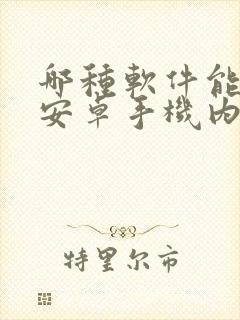 哪種軟件能
安卓手機內
特里尔市